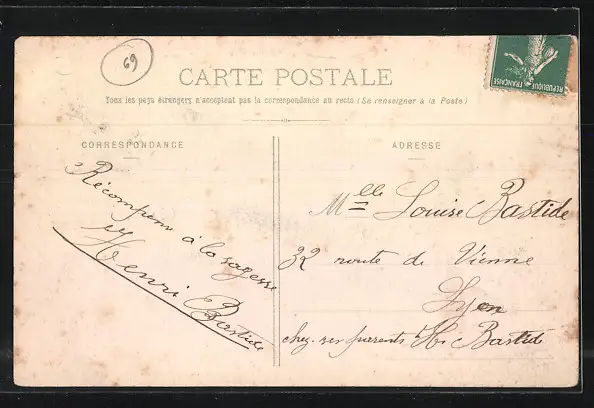 69
CARTE POSTALE
Tous les pays étrangers n'acceptent pas la correspondance au recto (Se renseigner à la Poste)
CORRESPONDANCE
Récompense à la sagesse
Henri Bastide
ADRESSE
Mlle Louise Bastide
32 route de Vienne
Lyon
chez ses parents Hi Bastide
REPUBLIQUE
FRANÇAISE